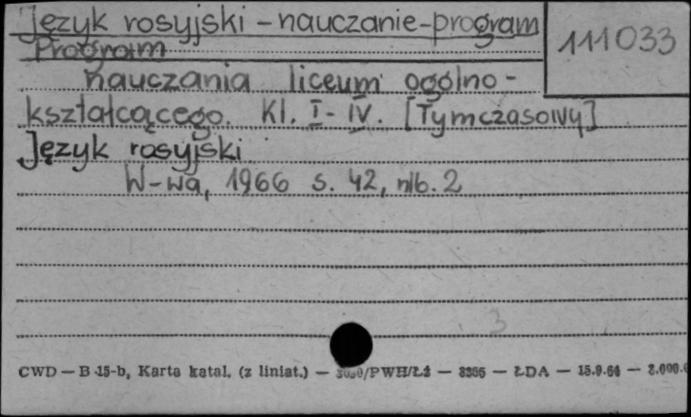 Język rosyjski - nauczanie - program
111033
Program
nauczania liceum ogólno-
kształcącego. Kl. I - IV. [Tymczasowy]
Język rosyjski
W-wa, 1966 s. 42, nlb. 2
3
CWD — B-15-b, Karta katal. (z liniat.) — /PWH/Łź — — ŁDA — 15.9.64 —